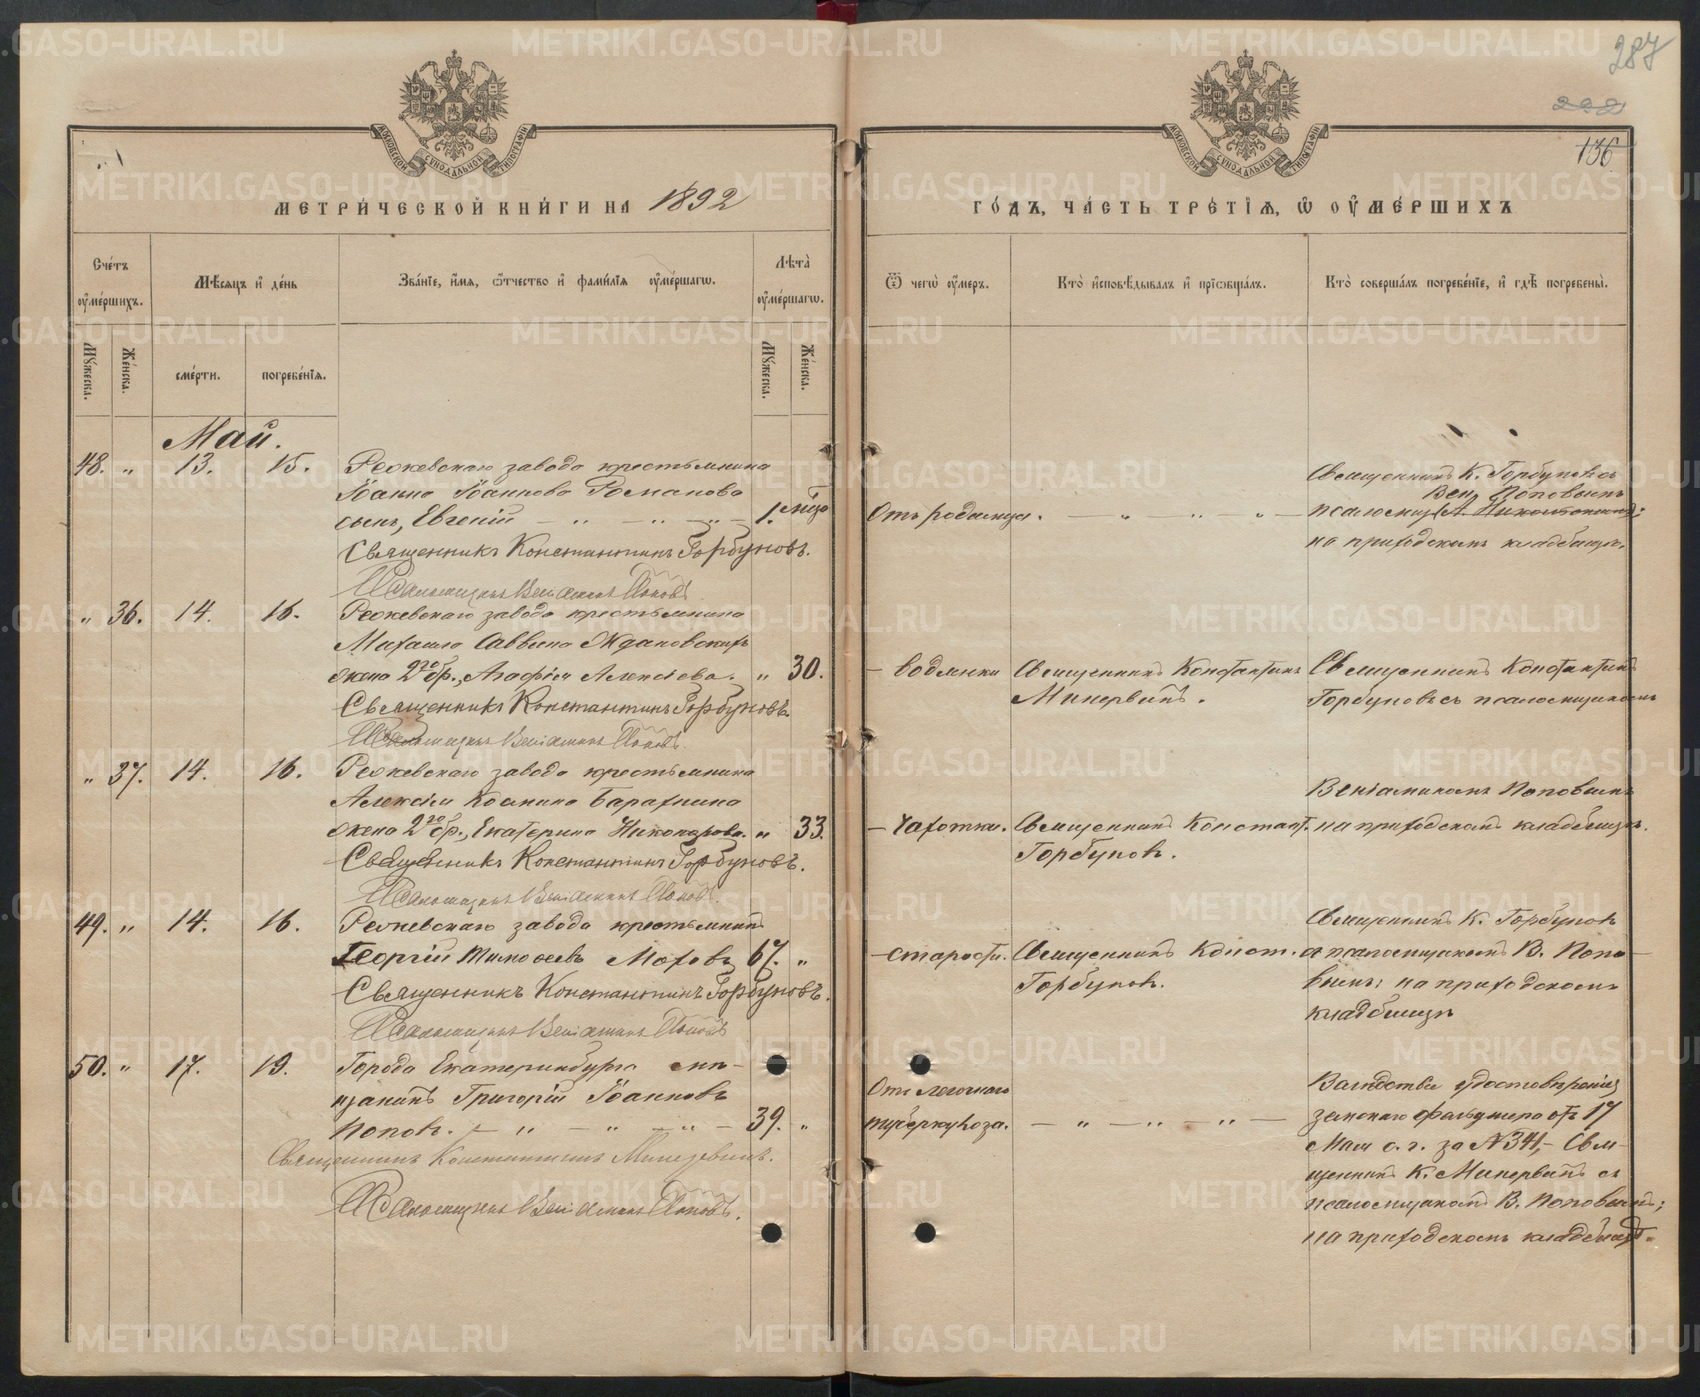 287
222
136
МЕТРИ́ЧЕСКОЙ КНИ́ГИ НА 1892
ГО́ДЪ, ЧА́СТЬ ТРЕ́ТІѦ, Ѽ ОУ҆МЕ́РШИХЪ
Сче́тъ оу҆ме́ршихъ.
Мѣ́сѧцъ и҆ де́нь
Зва́нїе, и҆́мѧ, ѻ҆́тчество и҆ фами́лїѧ оу҆ме́ршагѡ.
Лѣта̀ оу҆ме́ршагѡ.
Ѿ чегѡ̀ оу҆́меръ.
Кто̀ и҆сповѣ́дывалъ и҆ прїѡбща́лъ.
Кто̀ соверша́лъ погребе́нїе, и҆ гдѣ̀ погребены̀.
Мꙋ́жеска.
Же́нска.
сме́рти.
погребе́нїѧ.
Мꙋ́жеска.
Же́нска.
Май.
48. „ 13. 15. Режевскаго завода крестьянина
Іоанна Іоаннова Романова
сынъ, Евгеній — „ — „ — „ — 1.
Священникъ Константинъ Горбуновъ.
Псаломщикъ Веніаминъ Поповъ.
Отъ родимца. — „ „ „ —
Священникъ К. Горбуновъ съ
Вен. Поповымъ
псаломщ.
на приходскомъ кладбищѣ.
„ 36. 14. 16. Режевскаго завода крестьянина
Михаила Саввина Ждановскихъ
жена 2го бр., Агафія Алексіева. „ 30.
Священникъ Константинъ Горбуновъ.
Псаломщикъ Веніаминъ Поповъ.
— водянки
Священникъ Константинъ
Минервинъ.
Священникъ Константинъ
Горбуновъ съ псаломщикомъ
„ 37. 14. 16. Режевскаго завода крестьянина
Алексія Космина Барахнина
жена 2го бр., Екатерина Никонорова. „ 33.
Священникъ Константинъ Горбуновъ.
Псаломщикъ Веніаминъ Поповъ.
— чахотки.
Священникъ Констант.
Горбуновъ.
Веніаминомъ Поповымъ
на приходскомъ кладбищѣ.
49. „ 14. 16. Режевскаго завода крестьянинъ
Георгій Тимофеевъ Моховъ 67. „
Священникъ Константинъ Горбуновъ.
Псаломщикъ Веніаминъ Поповъ
— старости.
Священникъ Конст.
Горбуновъ.
Священникъ К. Горбуновъ
съ псаломщикомъ В. Попо-
вымъ; на приходскомъ
кладбищѣ
50. „ 17. 19. Города Екатеринбурга мѣ-
щанинъ Григорій Іоанновъ
Поповъ. — „ — „ — „ — 39. „
Священникъ Константинъ Минервинъ.
Псаломщикъ Веніаминъ Поповъ.
Отъ легочнаго
туберкулоза. — „ — „ — „ —
удостовѣренія
земскаго фельдшера отъ 17
Мая с. г. за № 341, — Свя-
щенникъ К. Минервинъ съ
псаломщикомъ В. Поповымъ;
на приходскомъ кладбищѣ.
METRIKI.GASO-URAL.RU